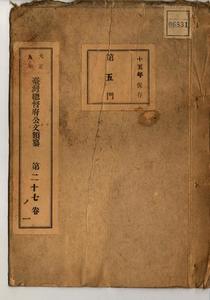 06831
十五年保存
第五門
大正
九年
臺灣總督府公文類纂
第二十七卷
ノ一